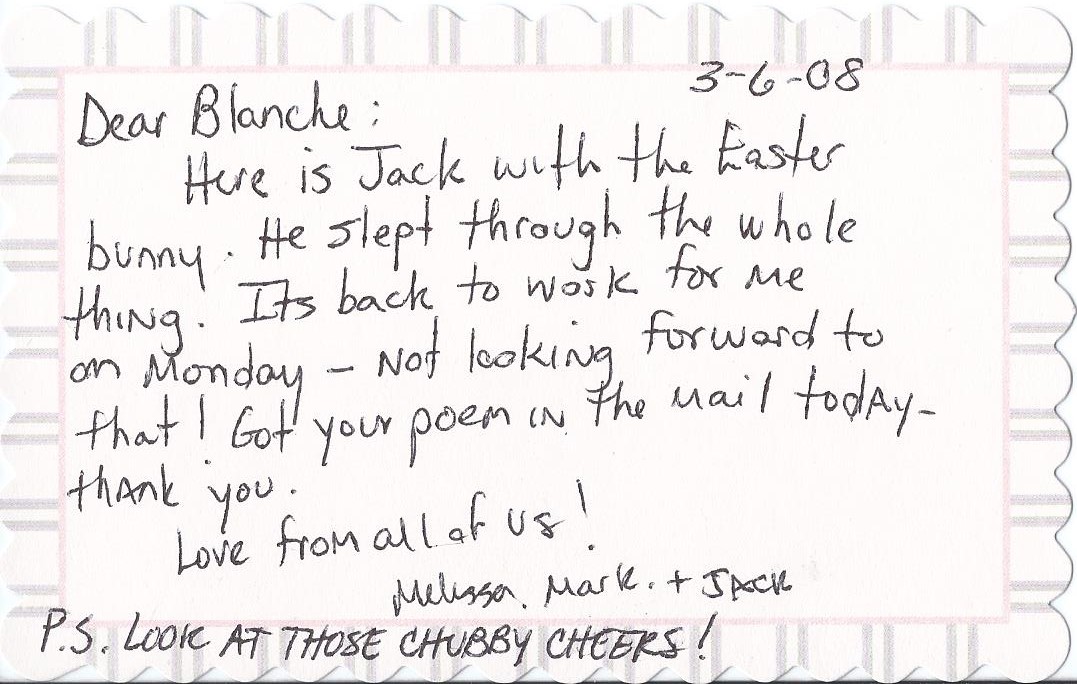 3-6-08
Dear Blanche:
Here is Jack with the Easter
bunny. He slept through the whole
thing. Its back to work for me
on Monday - Not looking forward to
that! Got your poem in the mail today-
thank you.
Love from all of us!
Melissa, Mark, + JACK
P.S. LOOK AT THOSE CHUBBY CHEEKS!